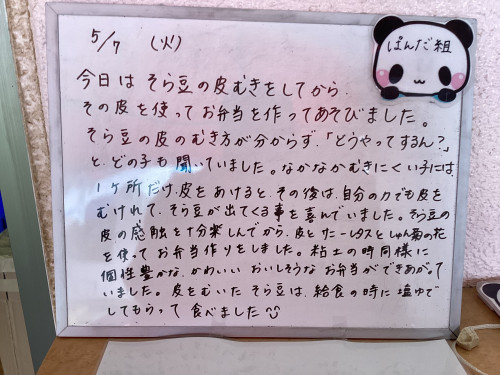 5/7 (火)
ぱんだ組
今日は そら豆の皮むきをしてから、
その皮を使って お弁当を作ってあそびました。
そら豆の皮のむき方が分からず、「どうやってするん?」
と、どの子も聞いていました。なかなかむきにくい子には、
1ヶ所だけ、皮をあけると、その後は、自分の力でも皮を
むけれて、そら豆が出てくる事を喜んでいました。そら豆の
皮の感触を十分楽しんでから、皮とサニーレタスとしゅん菊の花
を使って お弁当作りをしました。粘土の時同様に
個性豊かな、かわいい おいしそうな お弁当ができあがって
いました。皮をむいた そら豆は、給食の時に塩ゆで
してもらって 食べました